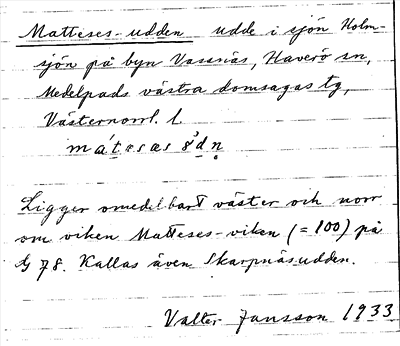 Matteses-udden udde i sjön Holm-
sjön på byn Vassnäs, Haverö sn,
Medelpads västra domsagas tg,
Västernorrl. l.
Ligger omedelbart väster och norr
om viken Matteses-viken (= 100) på
G 78. Kallas även Skarpnäsudden.
Valter Jansson 1933